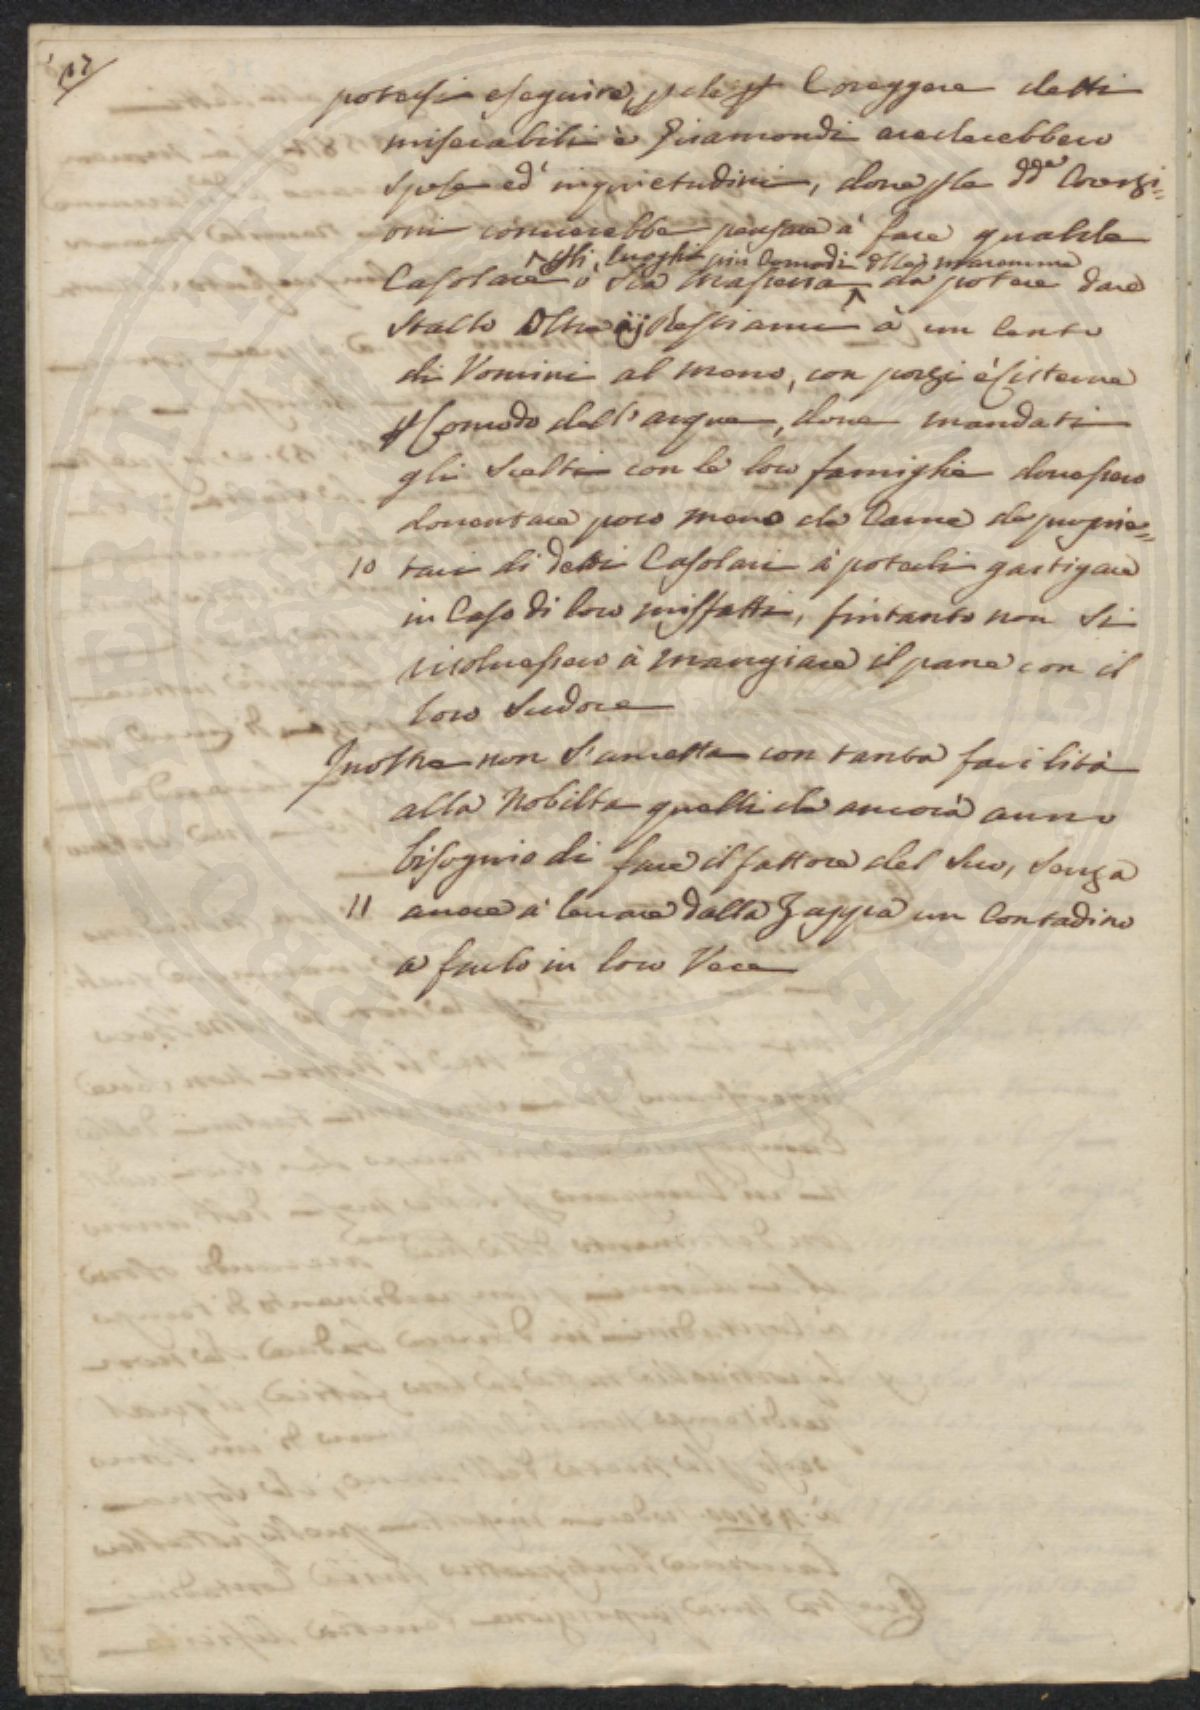 17
potersi eseguire, p che p Coreggere detti
miserabili è Giramondi accderebbero
Spese ed' inquietudini, dove p le dde Corezi=
oni converebbe pensare à fare qualche
p li luoghi piu Comodi della maremma
Casolare o sia Masseria da potere dare
Stallo Oltre ij Bestiami à un Cento
di Vomini al meno, con pozzi è Cisterne
p Comodo dell'acque, dove mandati
gli Scelti con le loro famiglie dovessero
doventare poco meno che Carne de proprie=
10 tari di detti Casolari à poterli gastigare
in Caso di loro misfatti, fintanto non Si
risolvessero à mangiare il pane con il
loro Sudore
Inoltre non S'ametta con tanta facilità
alla Nobiltà quelli che ancora anno
bisognio di fare il fattore del Suo, Senza
11 anare à levare dalla Zappa un Contadino
a farlo in loro Vece